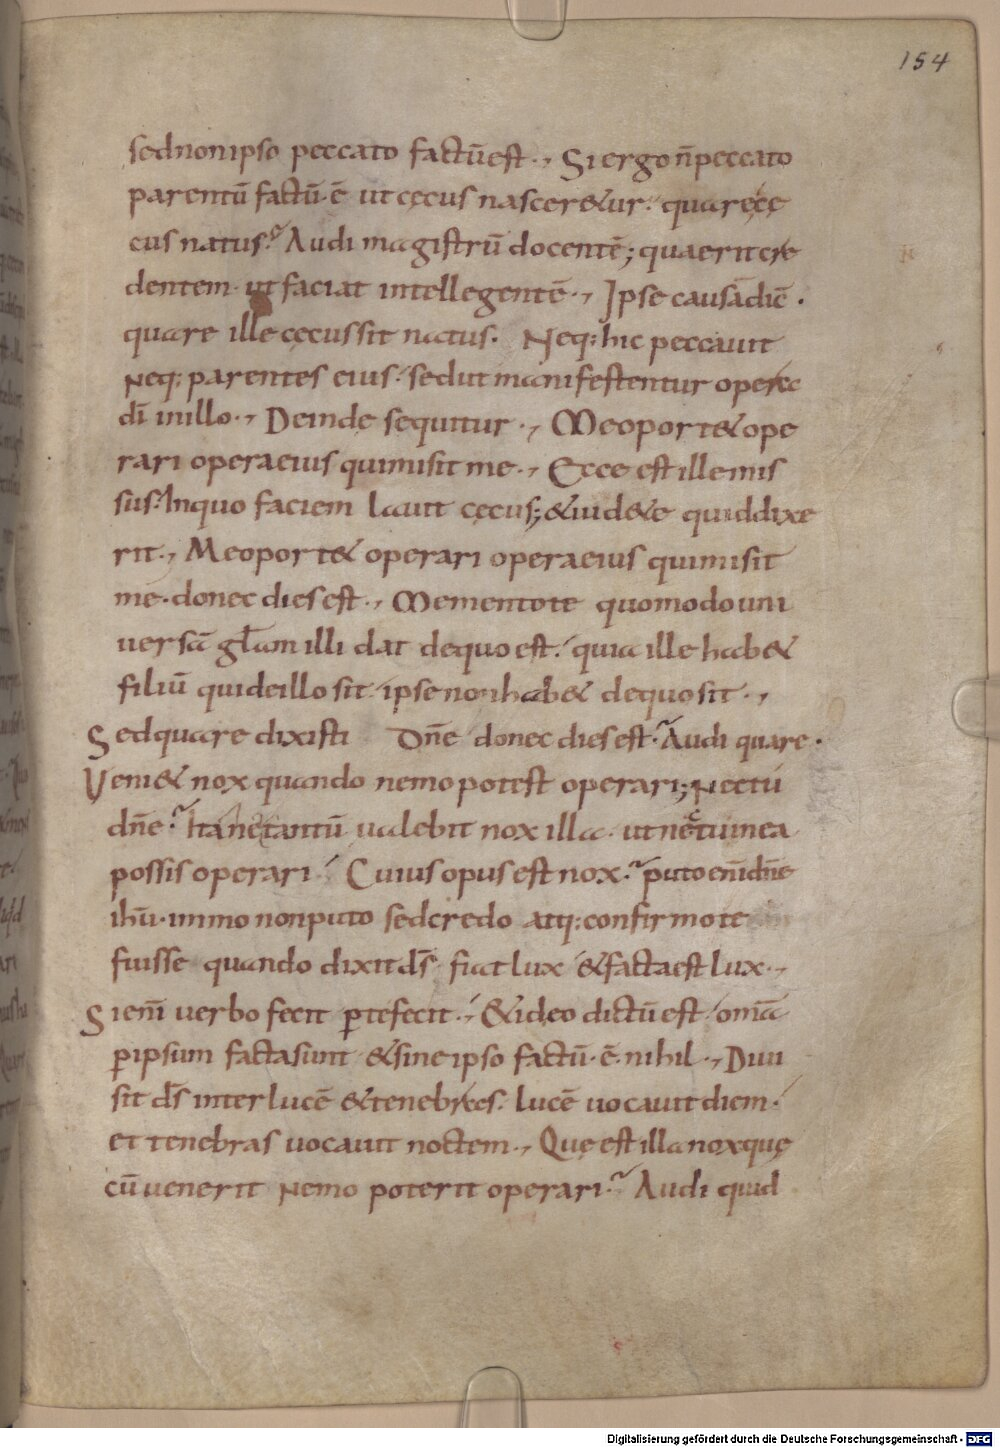 154
sed non ipso peccato factū est., Si ergo n̄ peccato
parentū factū· ē ut cęcus nasceret&ur· quare cę
cus natus? Audi magistrū docentē; quaerit cre
dentem· ut faciat intellegentē., Ipse causā dic̄·
quare ille cęcus sit natus. Neq: hic peccauit
Neq: parentes eius· sed ut manifestentur opera
dī in illo., Deinde sequitur., Me oport& ope
rari opera eius qui misit me., Ecce est ille mis
sus· In quo faciem lauit cęcus; & uid&e quid dixe
rit., Me oport& operari opera eius qui misit
me· donec dies est., Mementote quomodo uni
uersā gl̄am illi dat de quo est· quia ille hab&
filiū qui de illo sit· ipse non hab& de quo sit.,
Sed quare dixisti Dn̄e donec dies est? Audi quare·
Ueni& nox quando nemo potest operari; Nec tū
dn̄e? Ita ne tantū ualebit nox illa· ut nec tu in ea
possis operari· Cuius opus est nox? puto enī dn̄e
ih̄u· immo non puto sed credo atq: confirmo te
fuisse quando dixit ds̄· fiat lux & facta est lux.,
Si enī uerbo fecit p̄ te fecit., & ideo dictū est· omīa
p̄ ipsum facta sunt & sine ipso factū· ē· nihil., Diui
sit ds̄ inter lucē & tenebras· lucē uocauit diem·
et tenebras uocauit noctem., Quę est illa nox quę
cū uenerit Nemo poterit operari? Audi quid
Digitalisierung gefördert durch die Deutsche Forschungsgemeinschaft - DFG